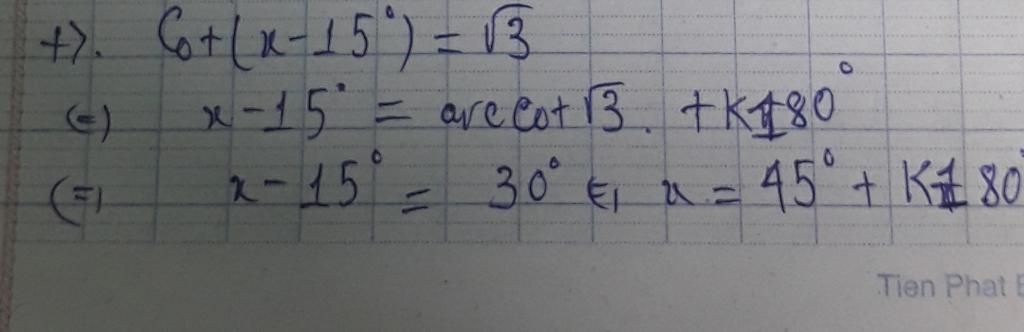 +). Cot(x-15°) = √3
(=) x-15° = arccot √3. +K180°
(=) x-15° = 30° (=) x = 45° + K180°
Tien Phat